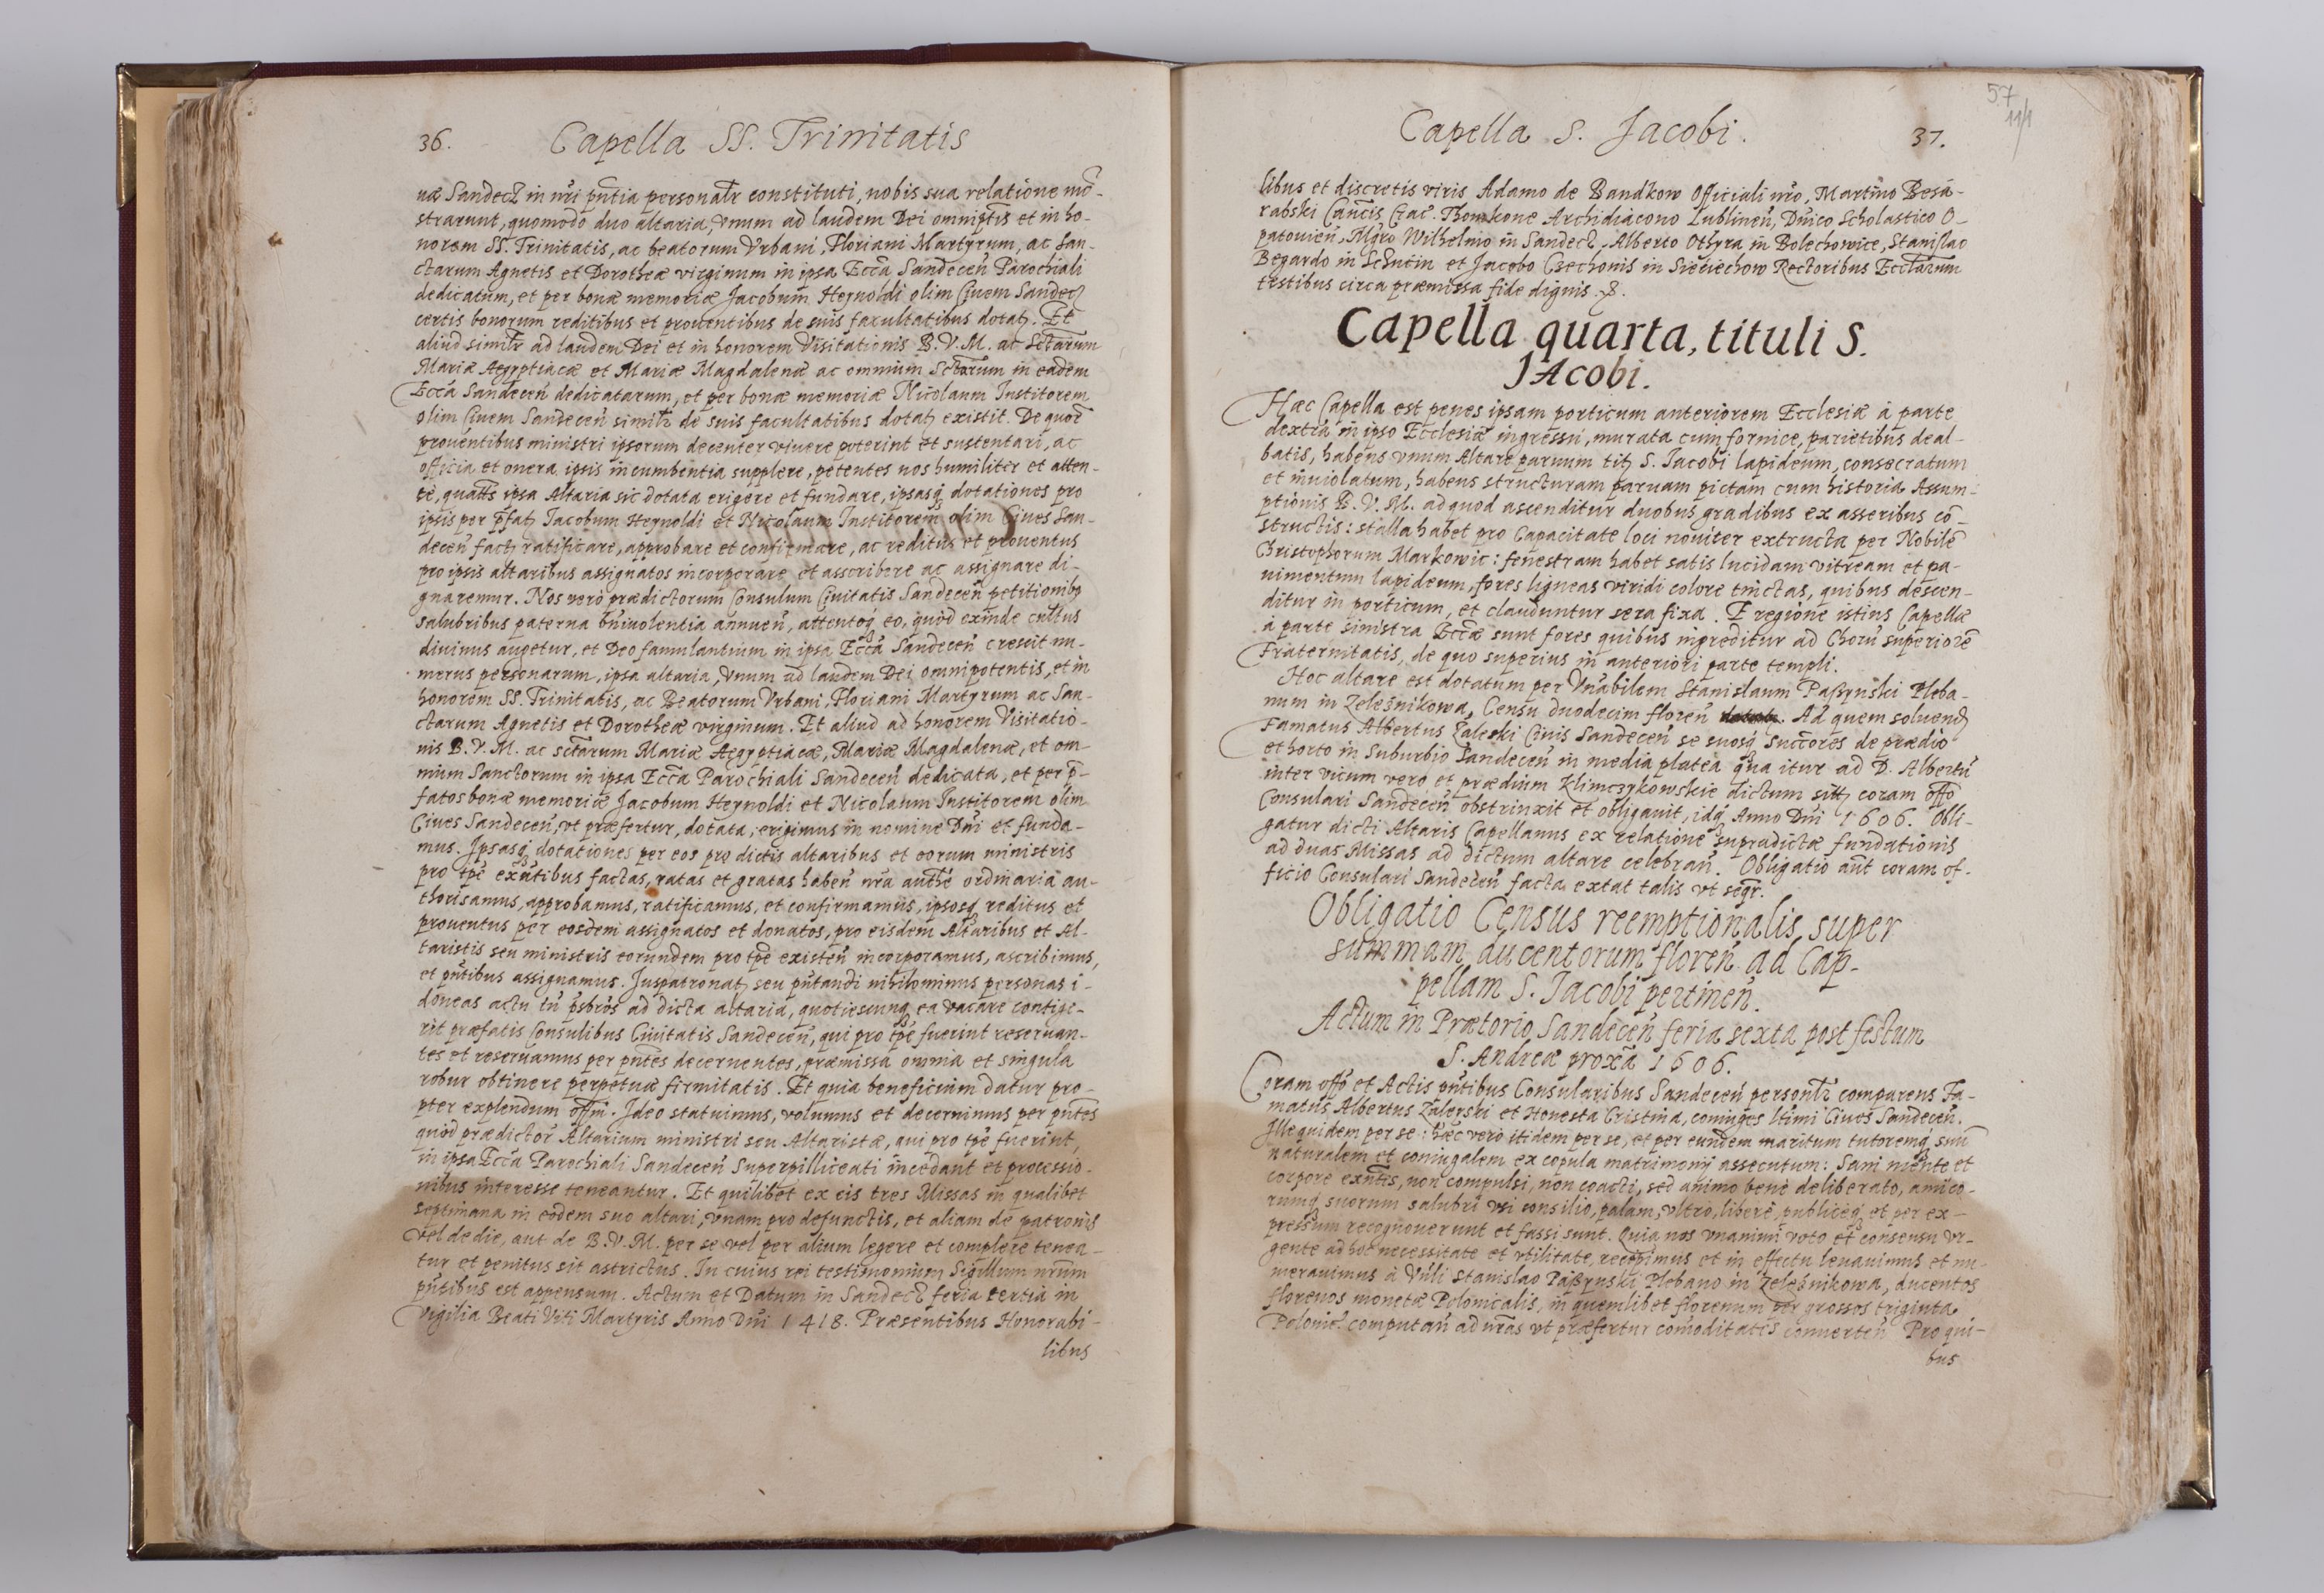 36. Capella SS. Trinitatis
uæ Sandecz in nri pntia personalr constituti, nobis sua relatione mō-
strarunt, quomodo duo altaria, vnum ad laudem Dei omniptis et in ho-
norem SS. Trinitatis, ac beatorum Vrbani, Floriani Martyrum, ac San-
ctarum Agnetis et Dorotheæ virginum in ipsa Ecca Sandeceń Parochiali
dedicatum, et per bonæ memoriæ Jacobum Heynoldi olim Ciuem Sandecz
certis bonorum reditibus et prouentibus de suis facultatibus dotatz. Et
aliud similr ad laudem Dei et in honorem Visitationis B. V. M. ac Sctarum
Mariæ Aegyptiacæ et Mariæ Magdalenæ ac omnium Sctorum in eadem
Ecca Sandeceń dedicatarum, et per bonæ memoriæ Nicolaum Institorem
olim Ciuem Sandeceń similr de suis facultatibus dotatz existit. De quor̄
prouentibus ministri ipsorum decenter viuere poterint et sustentari, ac
officia et onera ipsis incumbentia supplere, petentes nos humiliter et atten-
tè, quatts ipsa Altaria sic dotata erigere et fundare, ipsasq dotationes pro
ipsis per pfatz Jacobum Heynoldi et Nicolaum Institorem olim Ciues San-
deceń factz ratificare, approbare et confirmare, ac reditus et prouentus
pro ipsis altaribus assignatos incorporare et asscribere ac assignare di-
gnaremur. Nos verò prædictorum Consulum Ciuitatis Sandeceń petitionibq
salubribus paterna bniuolentia annueń, attentoq eo, quòd exinde cultus
diuinus augetur, et Deo famulantium in ipsa Ecca Sandeceń crescit nu-
merus personarum, ipsa altaria, vnum ad laudem Dei omnipotentis, et in
honorem SS. Trinitatis, ac Beatorum Vrbani, Floriani Martyrum ac San-
ctarum Agnetis et Dorotheæ virginum. Et aliud ad honorem Visitatio-
nis B. V. M. ac sctarum Mariæ Aegyptiacæ, Mariæ Magdalenæ, et om-
nium Sanctorum in ipsa Ecca Parochiali Sandeceń dedicata, et per p-
fatos bonæ memoriæ Jacobum Heynoldi et Nicolaum Institorem olim
Ciues Sandeceń, vt præfertur, dotata, erigimus in nomine Dni et funda-
mus. Ipsasq dotationes per eos pro dictis altaribus et eorum ministris
pro tpe exntibus factas, ratas et gratas habeń nra autħe ordinaria au-
thorisamus, approbamus, ratificamus, et confirmamus, ipsosq reditus et
prouentus per eosdem assignatos et donatos, pro eisdem Altaribus et Al-
taristis seu ministris eorundem pro tpe existeń incorporamus, ascribimus,
et pntibus assignamus. Juspatronatz seu pntandi nihilominus personas i-
doneas actu tn psbros ad dicta altaria, quotiescunq ea vacare contige-
rit præfatis Consulibus Ciuitatis Sandeceń, qui pro tpe fuerint reseruan-
tes et reseruamus per pntes decernentes, præmissa omnia et singula
robur obtinere perpetuæ firmitatis. Et quia beneficium datur pro-
pter explendum offm. Ideo statuimus, volumus et decernimus per pntes
quòd prædictor̄ Altarium ministri seu Altaristæ, qui pro tpe fuerint,
in ipsa Ecca Parochiali Sandeceń superpilliceati incedant et processio-
nibus interesse teneantur. Et quilibet ex eis tres Missas in qualibet
septimana in eodem suo altari, vnam pro defunctis, et aliam de patronis
vel de die, aut de B. V. M. per se vel per alium legere et complere tenea-
tur et penitus sit astrictus. In cuius rei testimonium Sigillum nrum
pntibus est appensum. Actum et Datum in Sandecz feria tertia in
vigilia Beati Viti Martyris Anno Dni 1418. Præsentibus Honorabi-
libus
57
11/1
Capella S. Jacobi. 37.
libus et discretis viris Adamo de Bandkow Officiali nro, Martino Besa-
rabski Cancis Crac. Thomkone Archidiacono Lublineń, Dnico Scholastico O-
patouień, Mgro Wilhelmo in Sandecz, Alberto Othyra in Bolechowice, Stanislao
Begardo in Schucin et Jacobo Czechonis in Sieciechow Rectoribus Ecclarum
testibus circa præmissa fide dignis.
Capella quarta, tituli S.
JAcobi.
Hæc Capella est penes ipsam porticum anteriorem Ecclesiæ à parte
dextra in ipso Ecclesiæ ingressu, murata cum fornice, parietibus deal-
batis, habens vnum Altare paruum titz S. Jacobi lapideum, consecratum
et inuiolatum, habens structuram paruam pictam cum historia Assum-
ptionis B. V. M. ad quod ascenditur duobus gradibus ex asseribus cō-
structis: stalla habet pro Capacitate loci nouiter extructa per Nobilē
Christophorum Markowic: fenestram habet satis lucidam vitream et pa-
uimentum lapideum, fores ligneas viridi colore tinctas, quibus descen-
ditur in porticum, et clauduntur sera fixa. E regione istius Capellæ
à parte sinistra Eccæ sunt fores quibus ingreditur ad Chorū superiorē
Fraternitatis, de quo superius in anteriori parte templi.
Hoc altare est dotatum per Vnabilem Stanislaum Paszynski Pleba-
num in Zeleźnikowa, Censu duodecim floreń. Ad quem soluendz
Famatus Albertus Zaleski Ciuis Sandeceń se suosq succores de prædio
et horto in suburbio Sandeceń in media platea qua itur ad D. Albertū
inter vicum vero et prædium Klimczykowskie dictum sittz coram offo
Consulari Sandeceń obstrinxit et obligauit, idq Anno Dni 1606. Obli-
gatur dicti Altaris Capellanus ex relatione supradictæ fundationis
ad duas Missas ad dictum altare celebrań. Obligatio ant coram of-
ficio Consulari Sandeceń facta extat talis vt segr.
Obligatio Census reemptionalis super
summam ducentorum floreń. ad Cap-
pellam S. Jacobi pertineń.
Actum in Prætorio Sandeceń feria sexta post festum
S. Andreæ proxa 1606.
Coram offo et Actis pntibus Consularibus Sandeceń personlr comparens Fa-
matus Albertus Zaleski et Honesta Cristina, coniuges ltimi Ciues Sandeceń.
Ille quidem per se: hæc verò itidem per se, et per eundem maritum tutoremq suū
naturalem et coniugalem ex copula matrimonij assecutum: Sani mente et
corpore exntis, non compulsi, non coacti, sed animo benè deliberato, amico-
rumq suorum salubri vsi consilio, palam, vltro, liberè, publicèq et per ex-
pressum recognouerunt et fassi sunt. Quia nos vnanimi voto et consensu vr-
gente ad hoc necessitate et vtilitate, recepimus et in effectu leuauimus et nu-
merauimus à Vnli Stanislao Paszynski Plebano in Zeleźnikowa, ducentos
florenos monetæ Polonicalis, in quemlibet florenum per grossos triginta
Polonic. computań ad nras vt præfertur comoditates conuerteń Pro qui-
bus